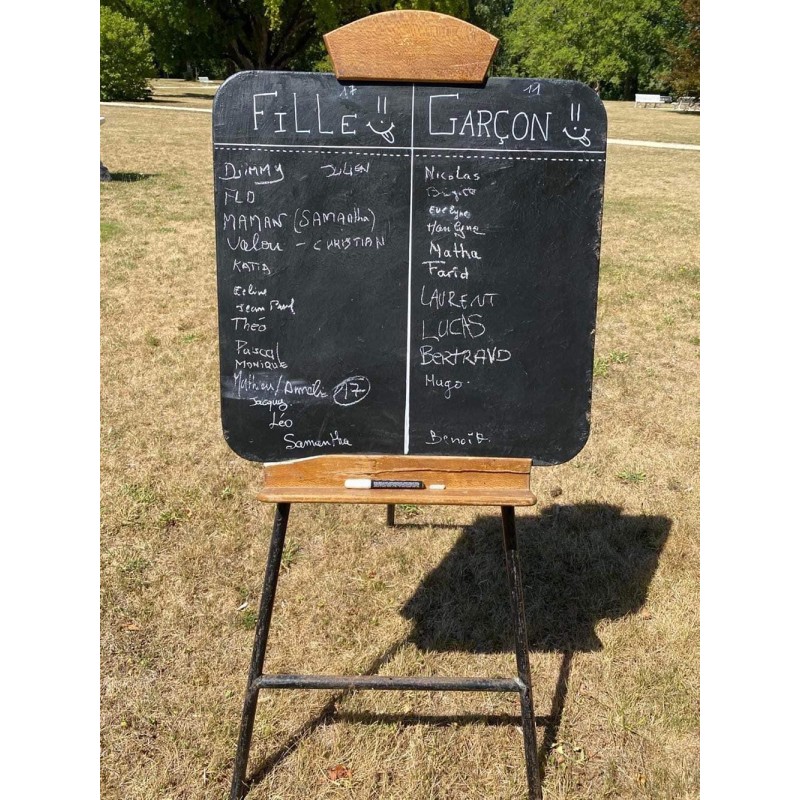 17
FILLE
11
GARÇON
DJIMMY JULIEN
FLO
MAMAN (SAMANTHA)
Valou - CHRISTIAN
KATIA
Celine
Jean Paul
Théo
Pascal
MONIQUE
Mathieu/Annick 17
Jacques
Léo
Samantha
Nicolas
Brigitte
Evelyne
Marilyne
Matha
Farid
LAURENT
LUCAS
BERTRAND
Hugo.
Benoît